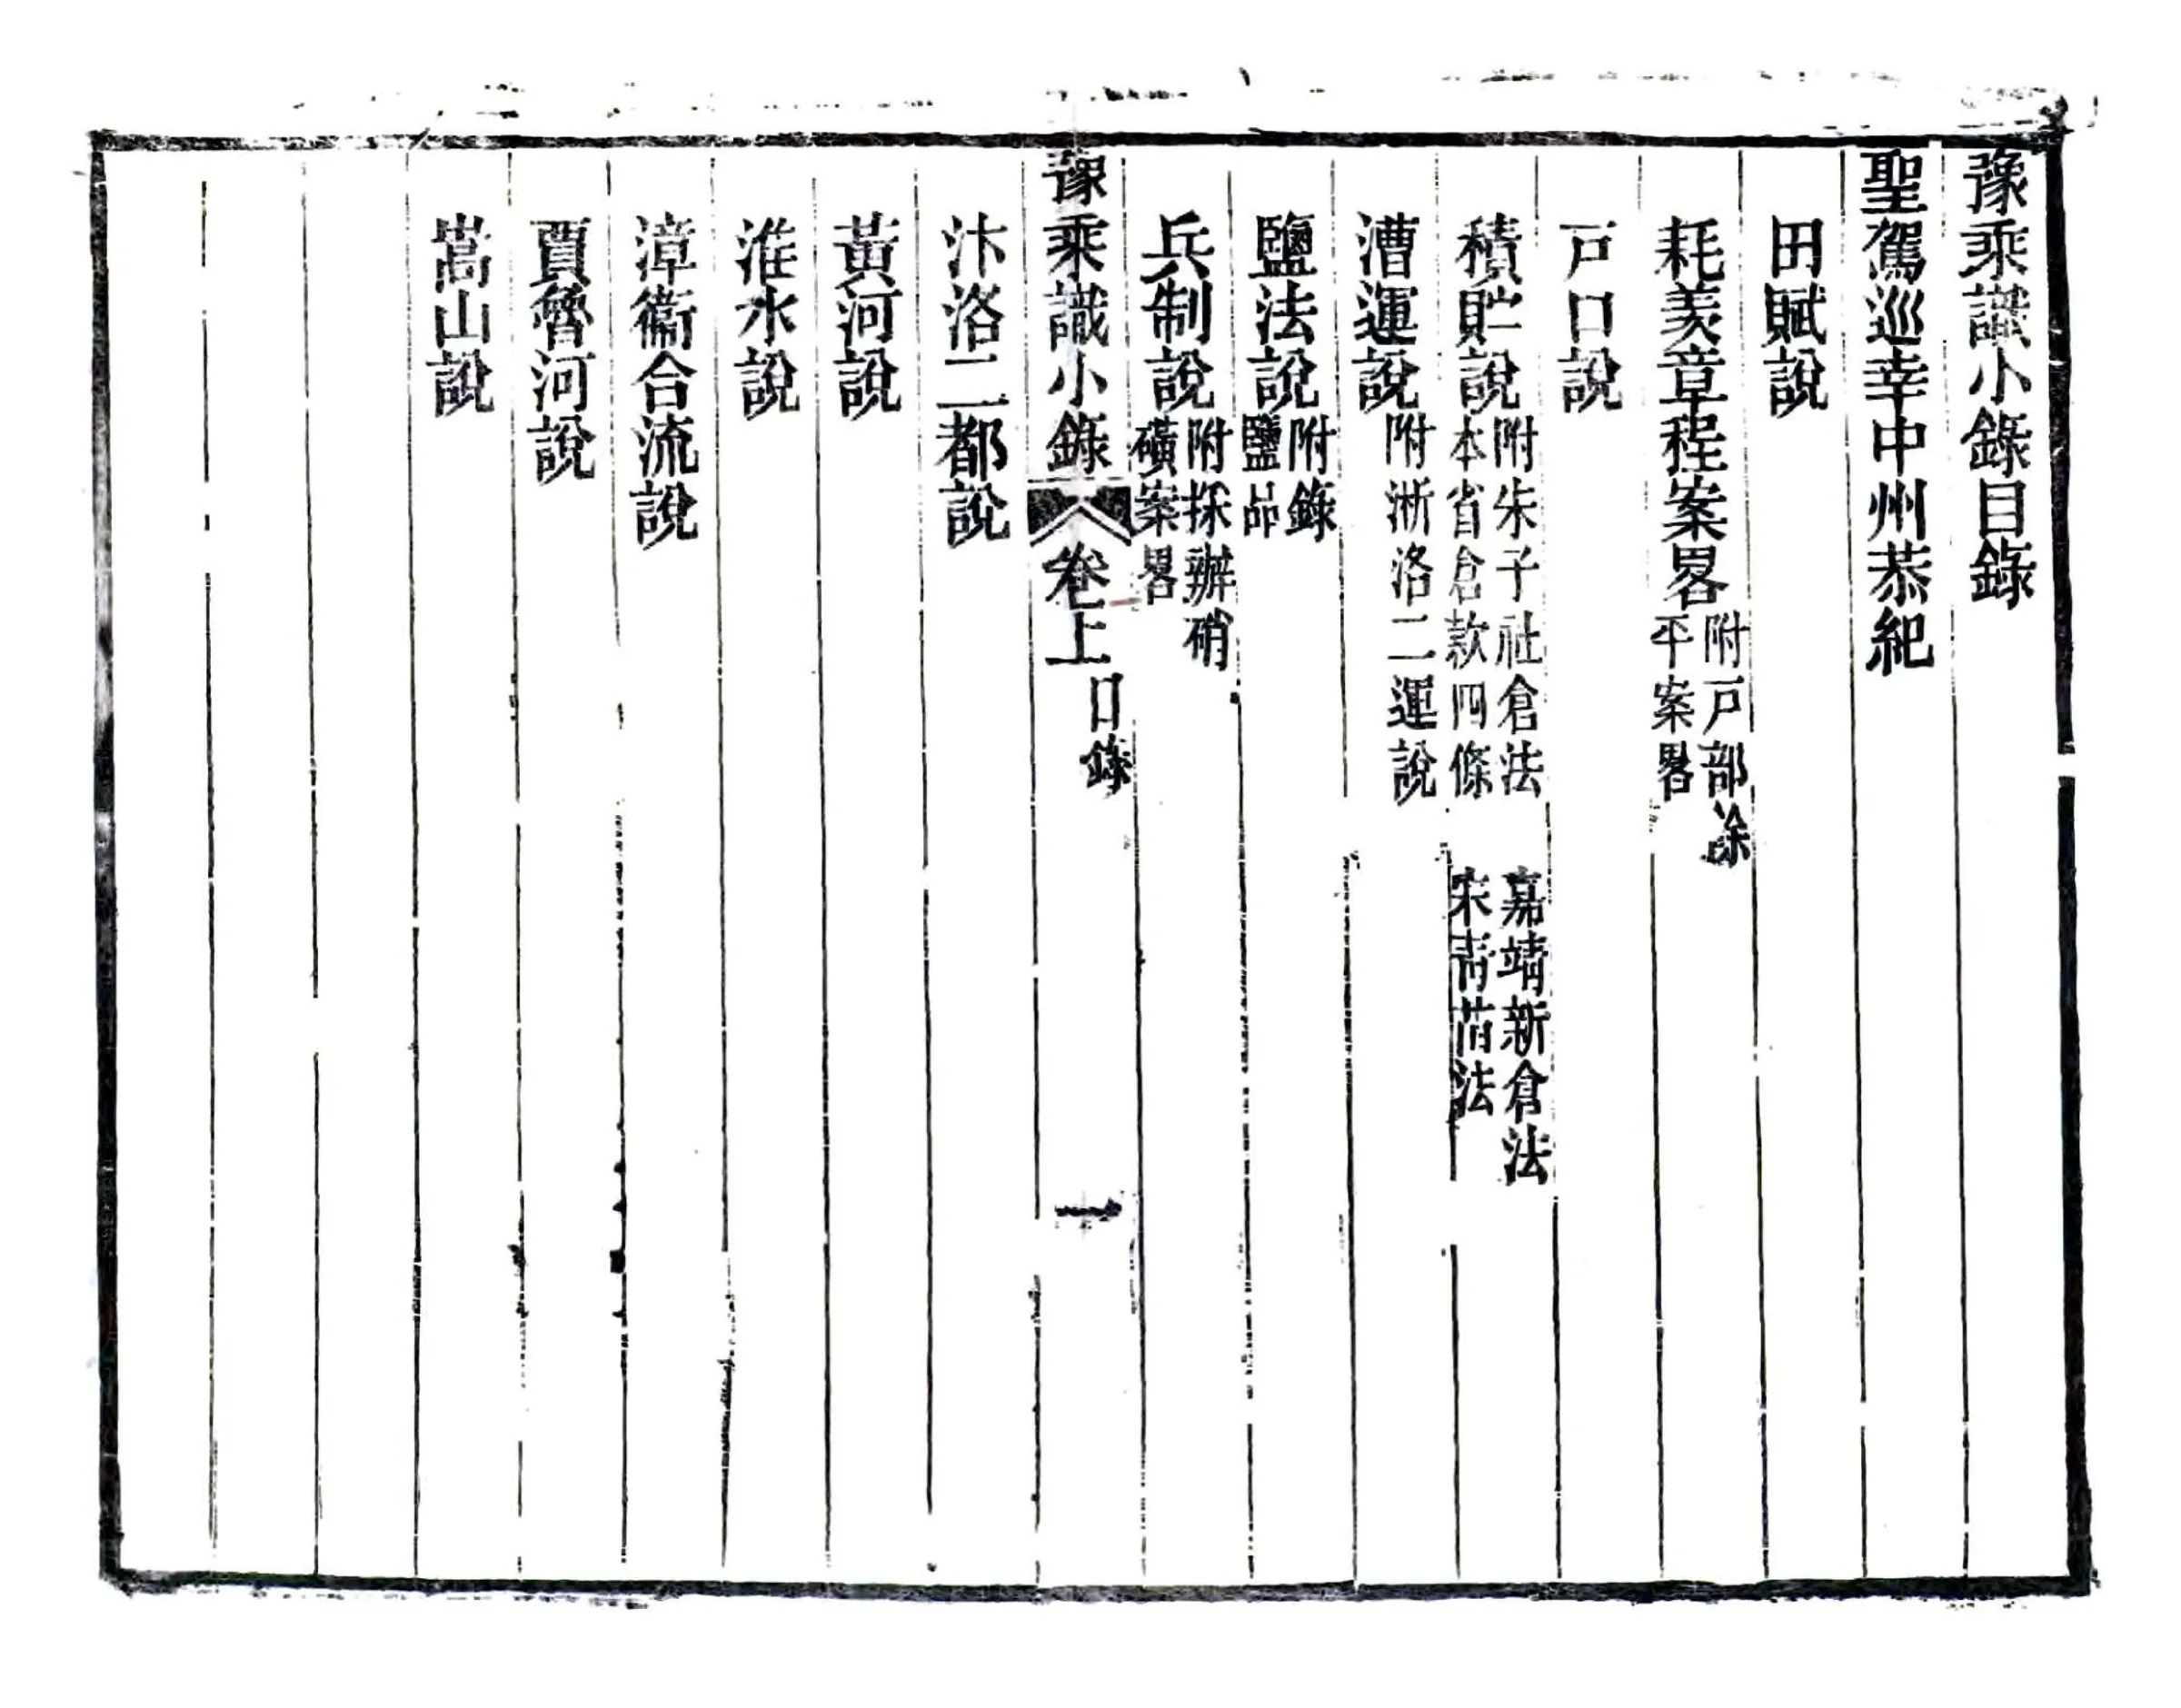 豫乘識小錄目錄
聖駕巡幸中州恭紀
田賦說
耗羨章程案畧 附戶部涂
平案畧
戶口說
積貯說 附朱子社倉法 嘉靖新倉法
本省倉款四條 宋靑苗法
漕運說 附淅洛二運說
鹽法說 附錄
鹽品
兵制說 附採辦硝
磺案畧
豫乘識小錄 卷上 目錄 一
汴洛二都說
黃河說
淮水說
漳衞合流說
賈魯河說
嵩山說